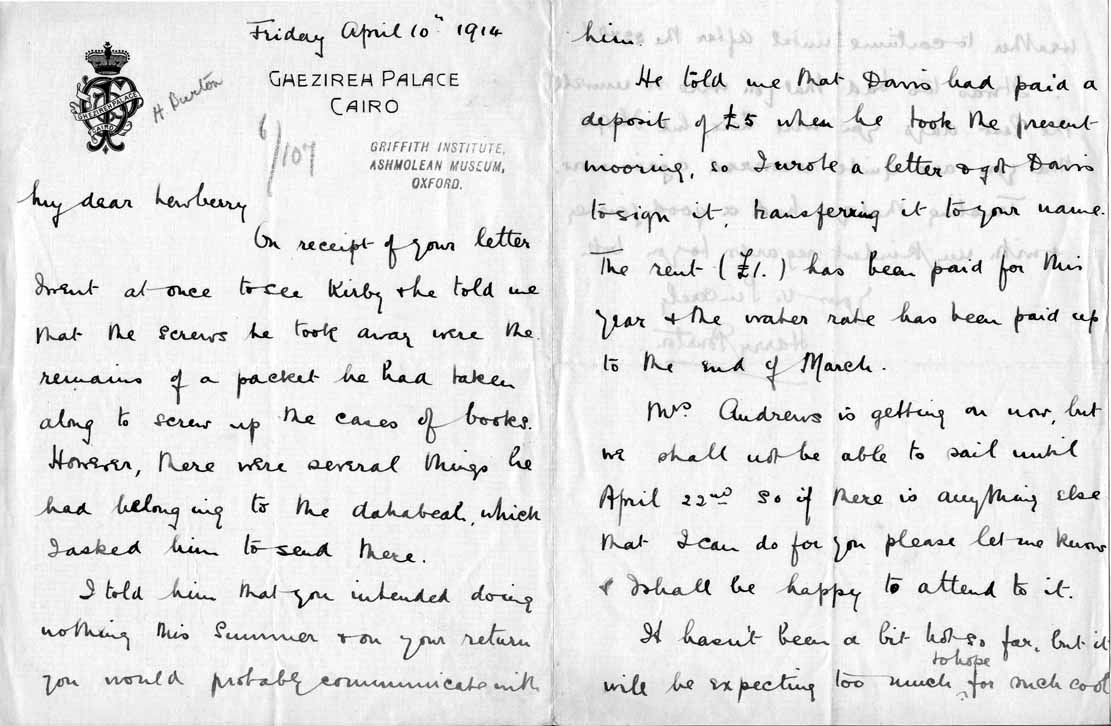 Friday April 10th 1914
GHEZIREH PALACE
CAIRO
GHEZIREH PALACE
CAIRO
H. Burton
6/107
GRIFFITH INSTITUTE,
ASHMOLEAN MUSEUM,
OXFORD.
My dear Newberry
On receipt of your letter
I went at once to see Kirby & he told me
that the screws he took away were the
remains of a packet he had taken
along to screw up the cases of books.
However, there were several things he
had belonging to the dahabeah, which
I asked him to send there.
I told him that you intended doing
nothing this Summer & on your return
you would probably communicate with
him.
He told me that Davis had paid a
deposit of £5 when he took the present
mooring, so I wrote a letter & got Davis
to sign it, transferring it to your name.
The rent (£1.) has been paid for this
year & the water rate has been paid up
to the end of March.
Mrs Andrews is getting on now, but
we shall not be able to sail until
April 22nd so if there is anything else
that I can do for you please let me know
& I shall be happy to attend to it.
It hasn't been a bit hot so far, but it
will be expecting too much to hope for such cool